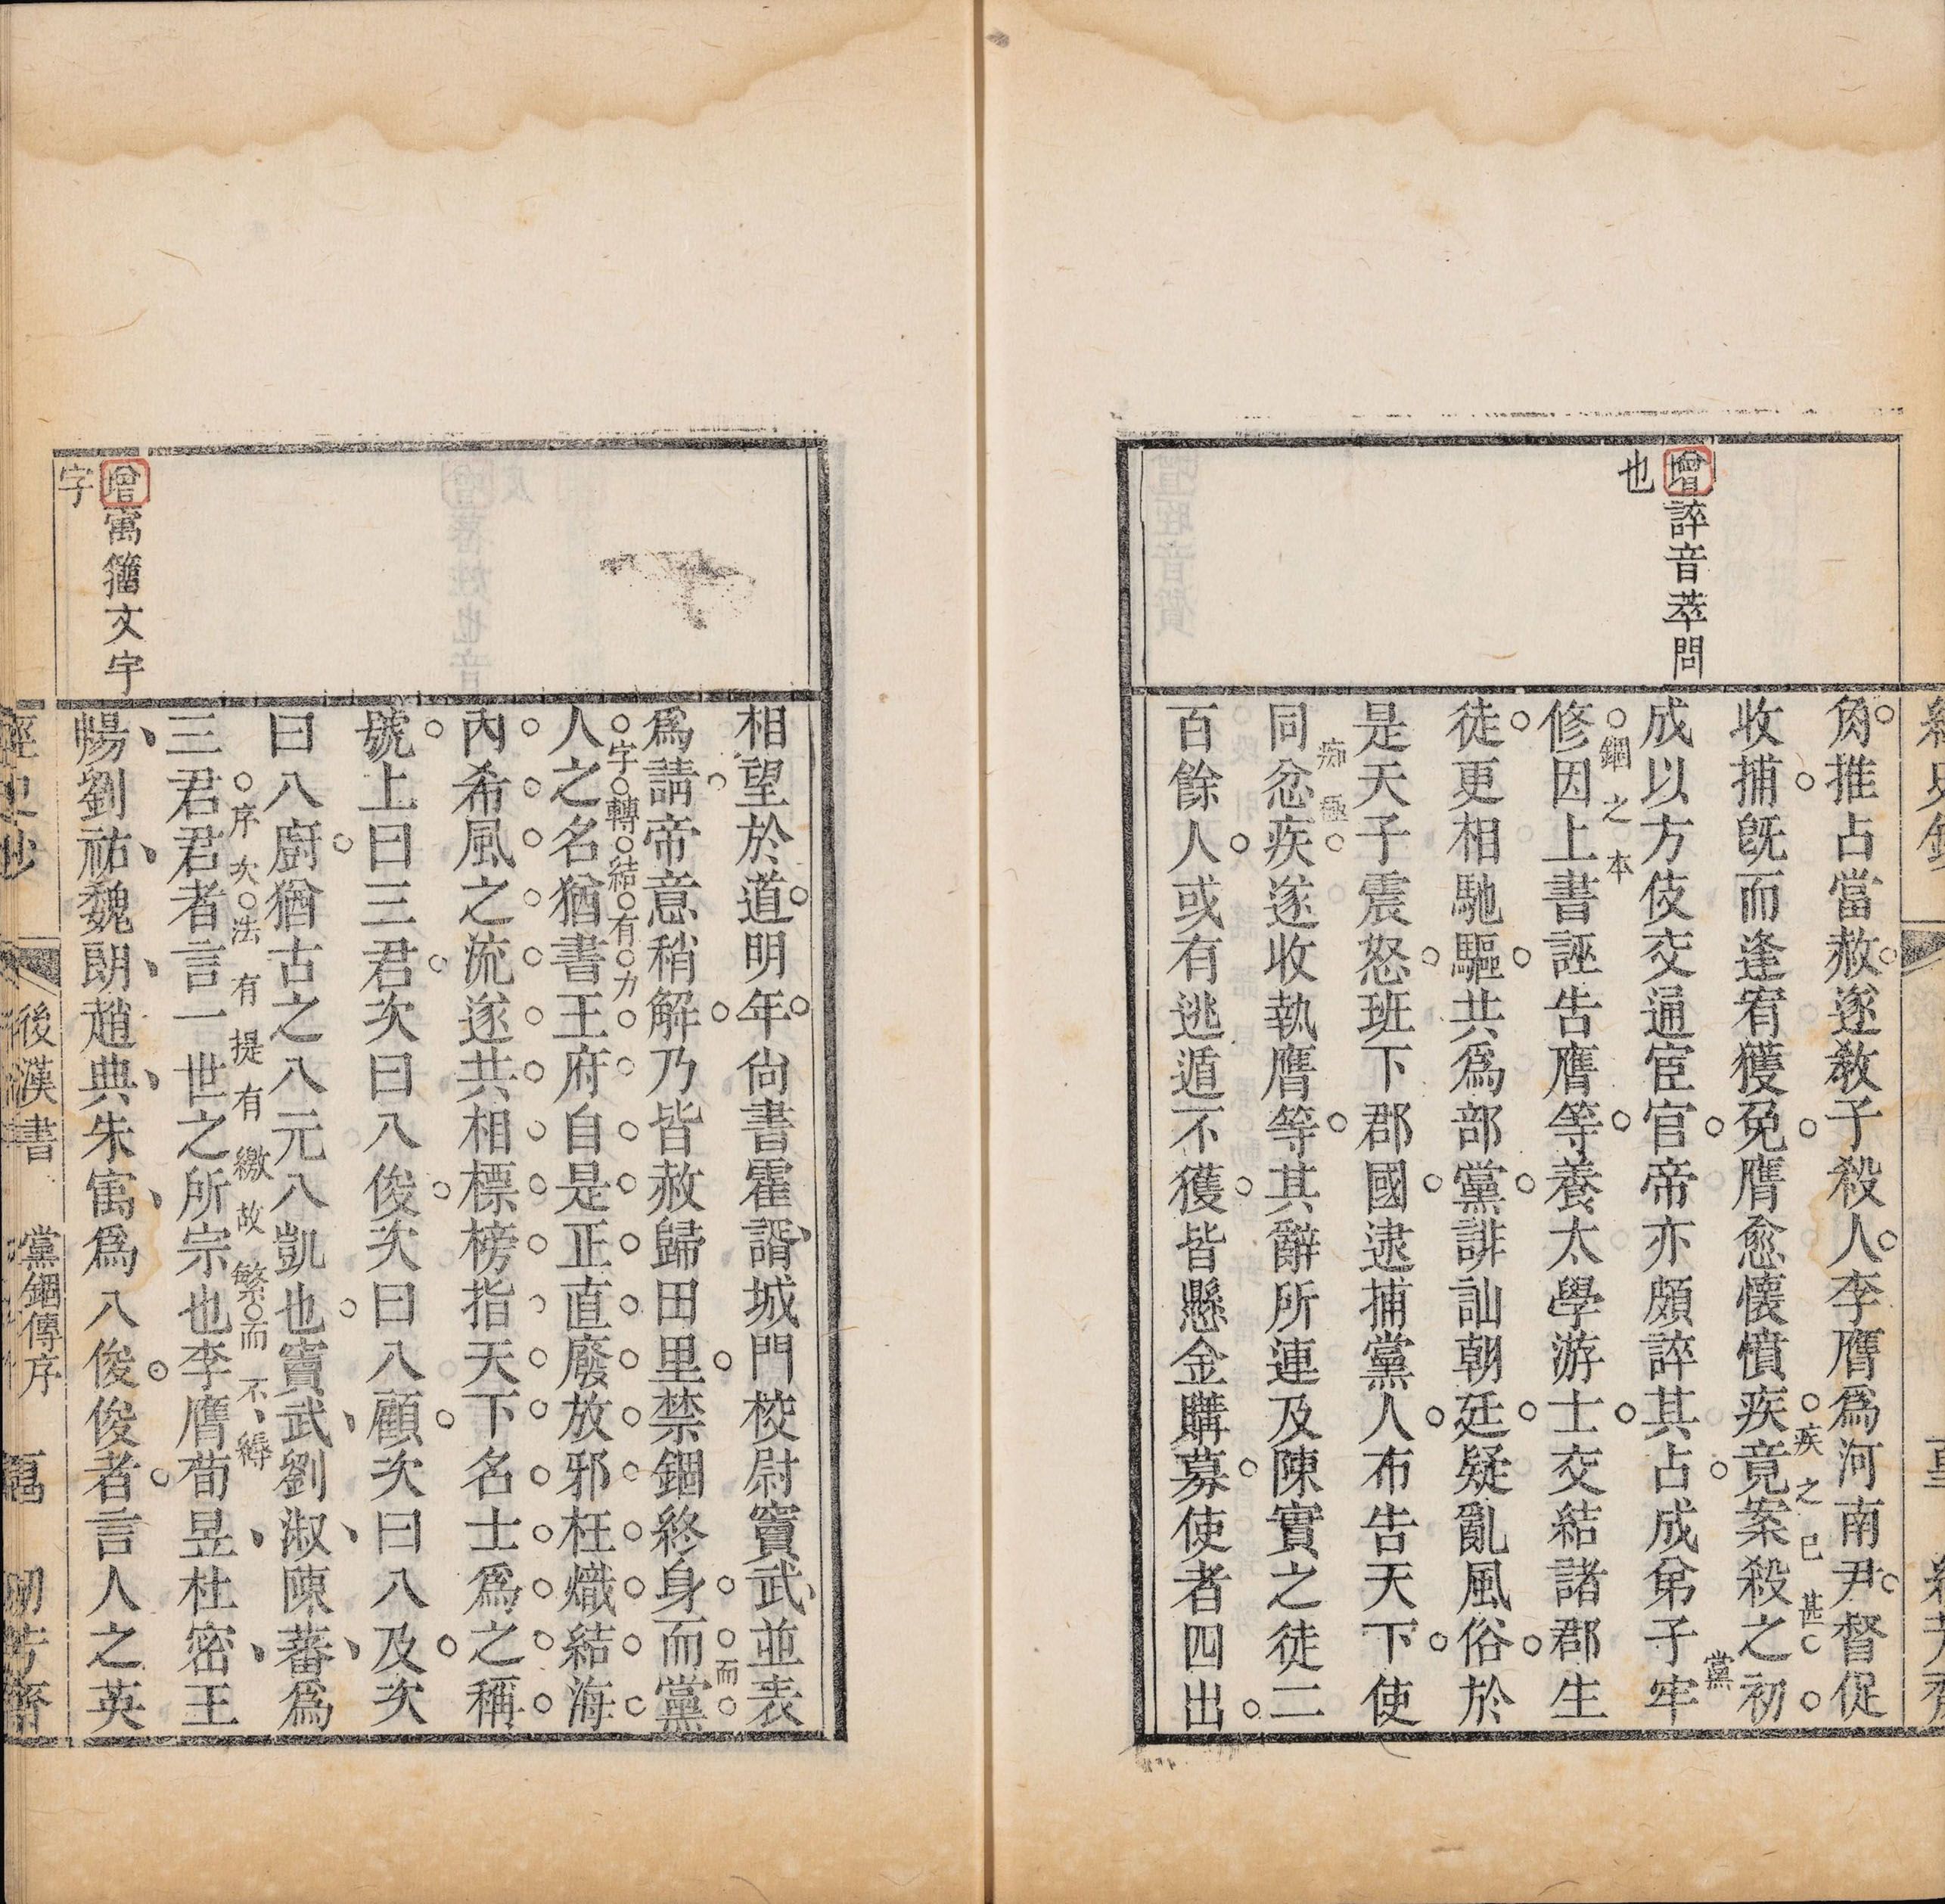 增誶音萃問
也
角推占當赦遂敎子殺人李膺爲河南尹督促
收捕旣而逢宥獲免膺愈懷憤疾竟案殺之初
疾之已甚
成以方伎交通宦官帝亦頗誶其占成弟子牢
黨
錮之本
修因上書誣告膺等養太學游士交結諸郡生
徒更相馳驅共爲部黨誹訕朝廷疑亂風俗於
是天子震怒班下郡國逮捕黨人布告天下使
同忿疾遂收執膺等其辭所連及陳實之徒二
百餘人或有逃遁不獲皆懸金購募使者四出
相望於道明年尙書霍諝城門校尉竇武並表
爲請帝意稍解乃皆赦歸田里禁錮終身而黨
而
字轉結有力
人之名猶書王府自是正直廢放邪枉熾結海
內希風之流遂共相標榜指天下名士爲之稱
號上曰三君次曰八俊次曰八顧次曰八及次
曰八廚猶古之八元八凱也竇武劉淑陳蕃爲
序次法有提有繳故繁而不縟
三君君者言一世之所宗也李膺荀昱杜密王
暢劉祐魏朗趙典朱寓爲八俊俊者言人之英
增寓籀文宇
字
後漢書 黨錮傳序